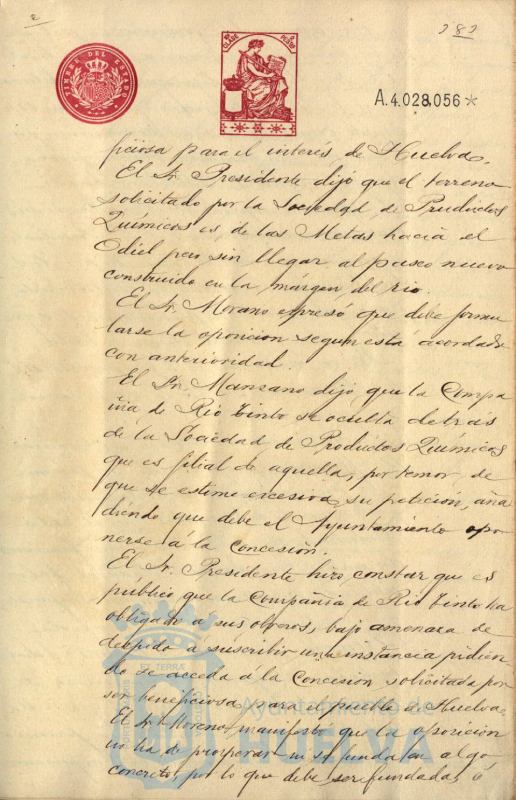 2
282
TIMBRE DEL ESTADO
CLASE
PESETAS
A.4.028.056*
ficiosa para el interés de Huelva.
El Sr. Presidente dijó que el terreno
solicitado por la Sociedad de Productos
Químicos es de las Metas hacia el
Odiel pero sin llegar al paseo nuevo
construido en la márgen del rio.
El Sr. Morano expresó que debe formu
larse la oposicion segun está acordado
con anterioridad.
El Sr. Manzano dijó que la Compa
ñia de Rio Tinto se oculta detrás
de la Sociedad de Productos Químicos
que es filial de aquella, por temor de
que se estime excesiva su petición, aña
diendo que debe el Ayuntamiento opo
nerse á la concesión.
El Sr. Presidente hizo constar que es
público que la Compañia de Rio Tinto ha
obligado a sus obreros, bajo amenaza de
despido a suscribir una instancia pidien
do se acceda á la Concesion solicitada por
ser beneficiosa para el pueblo de Huelva.
El Sr. Moreno manifestó que la oposición
no ha de prosperar ni se funda en algo
concreto, por lo que debe ser fundada, ó
ET TERRAE
Ayuntamiento de
HUELVA